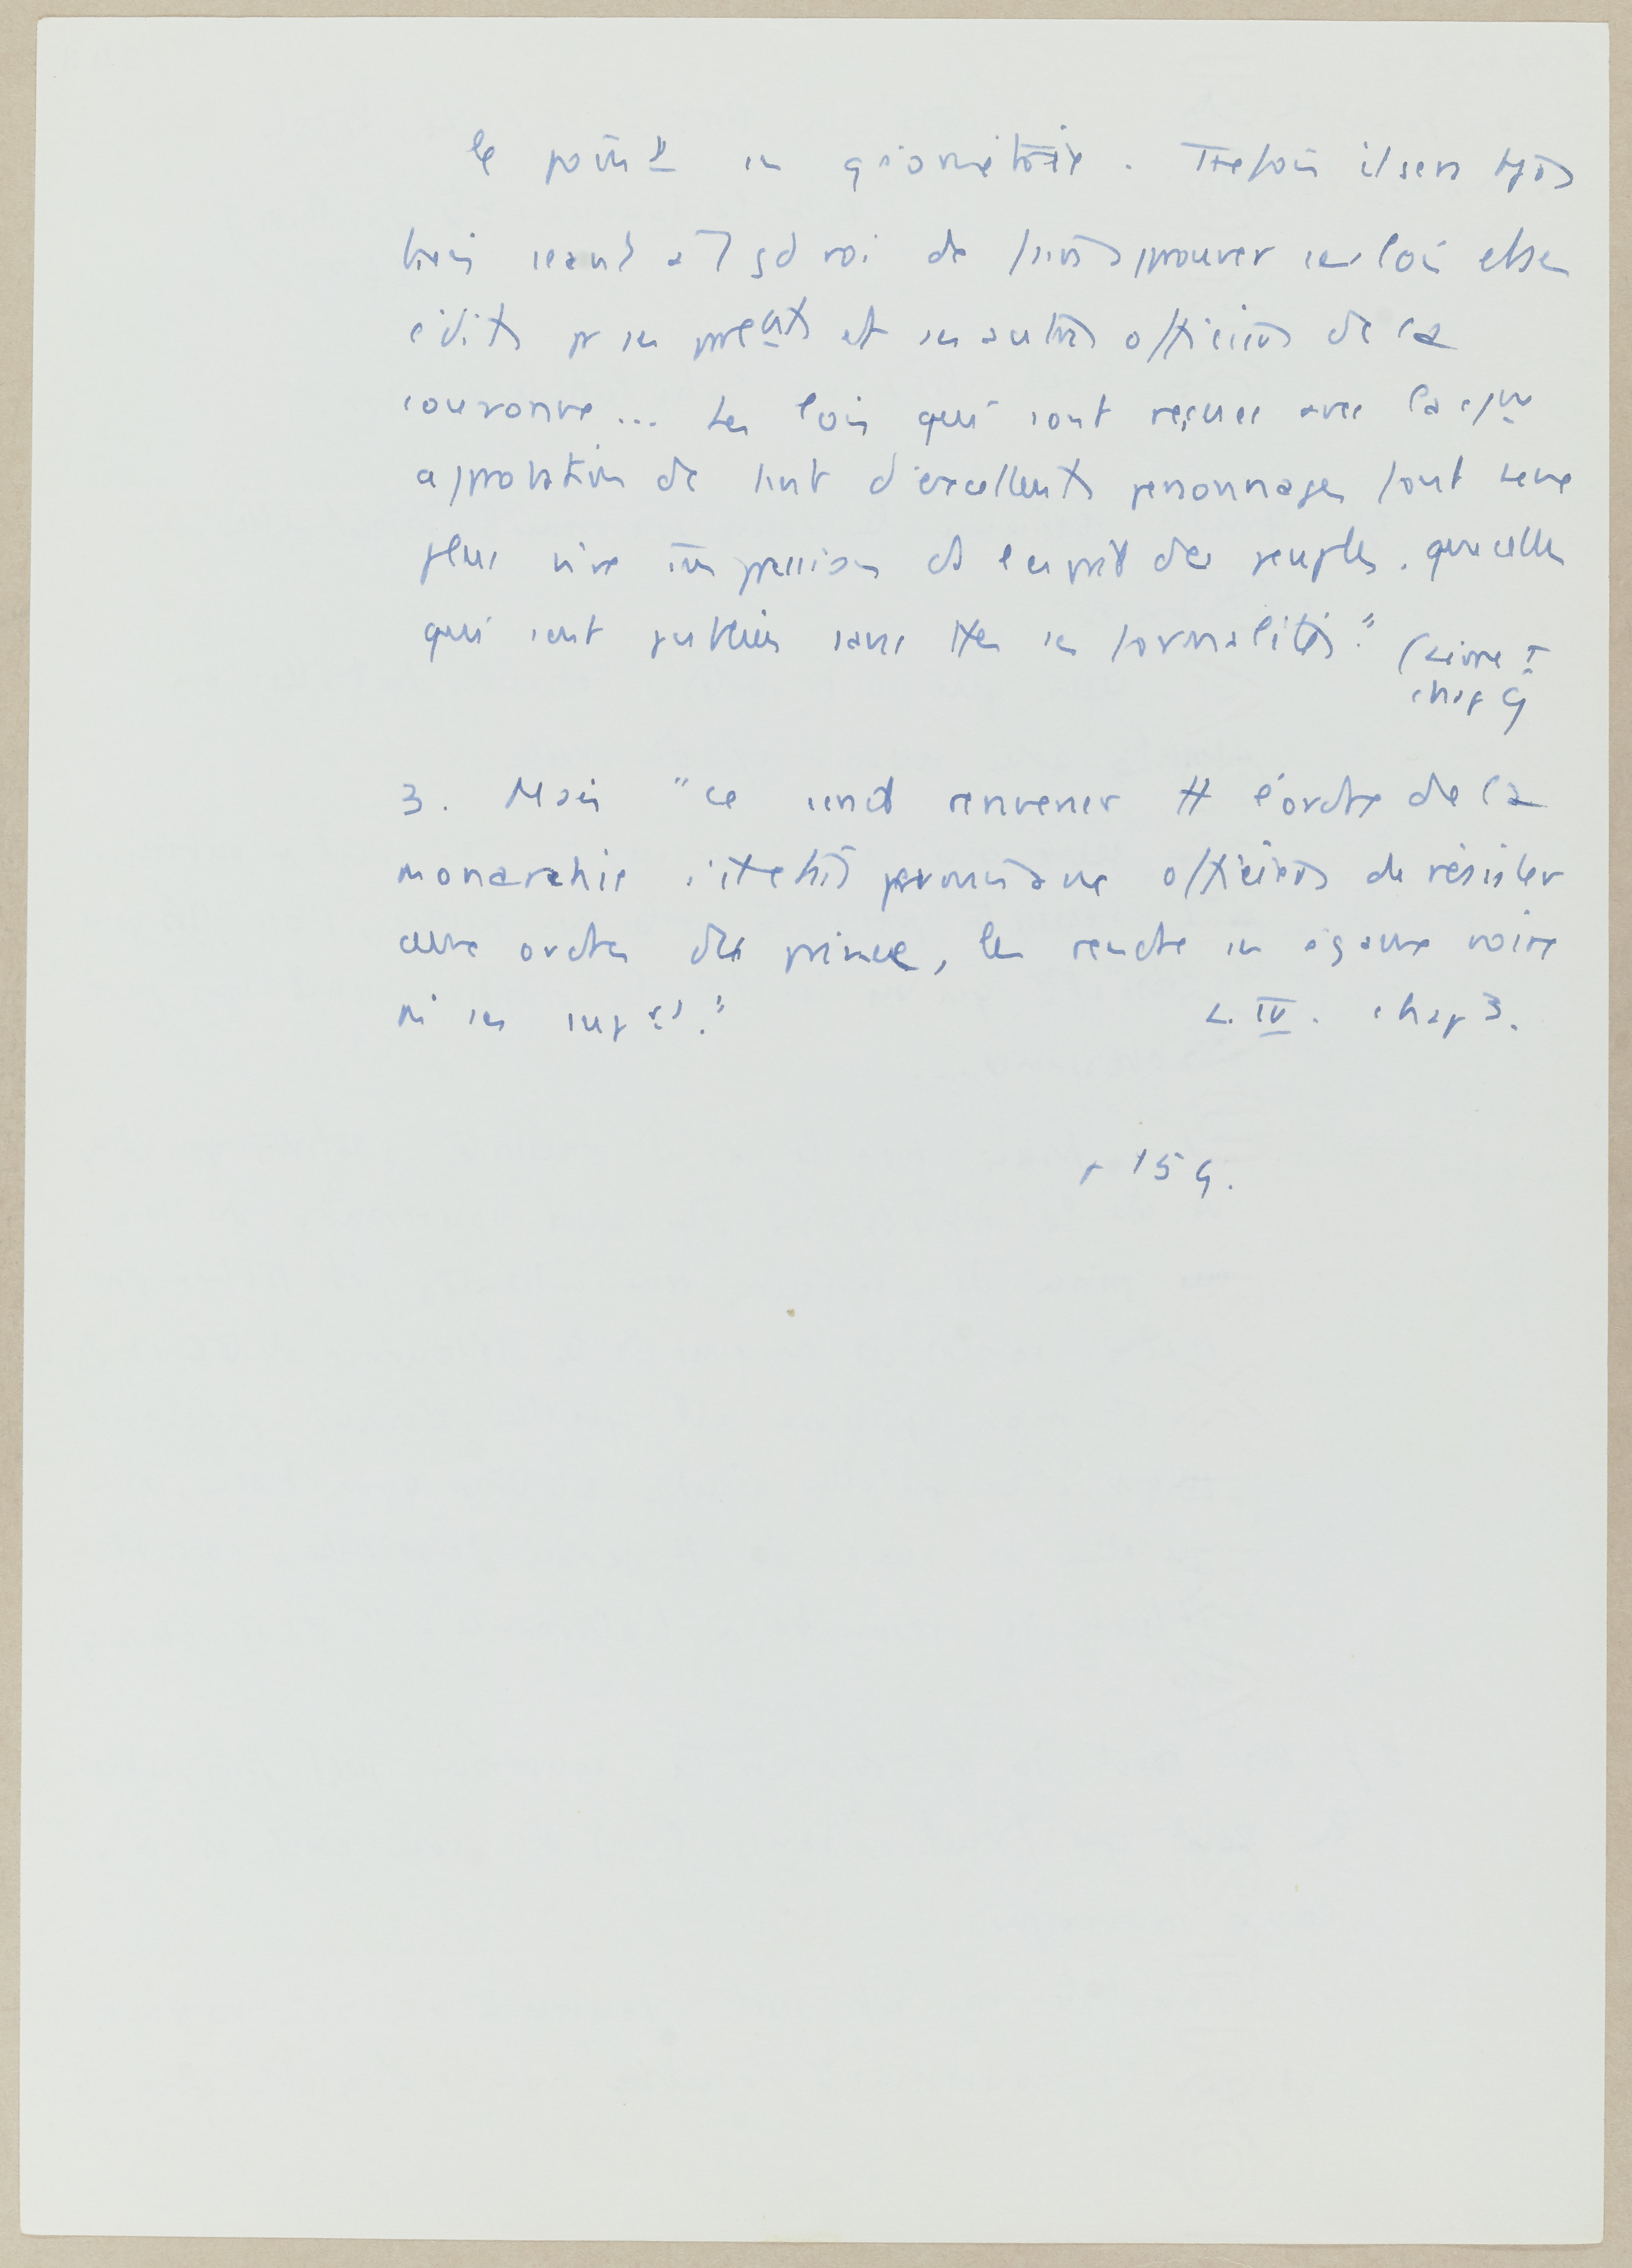 le point en géométrie. Ttefois il sera tjrs
bien séant à 1 gd roi de faire approuver ses lois et ses
édits pr ses et les autres officiers de la
couronne... Les lois qui sont reçues avec la
approbation de tant d'excellents personnages font une
plus vive impression ds l'esprit des peuples. que celles
qui sont publiées sans ttes ces formalités." (Livre I
chap 9
3. Mais "ce serait renverser tt l'ordre de la
monarchie permis aux officiers de résister
aux ordres du prince, les rendre ses égaux voire
ni ses suprs."
L. IV. chap 3.
p 159.